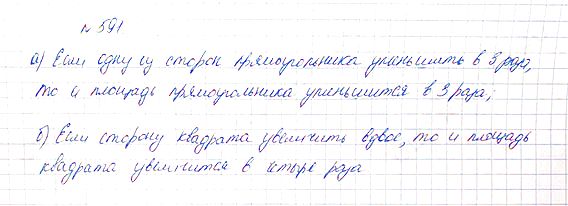 № 591
а) Если одну из сторон прямоугольника уменьшить в 3 раза,
то и площадь прямоугольника уменьшится в 3 раза;
б) Если сторону квадрата увеличить вдвое, то и площадь
квадрата увеличится в четыре раза